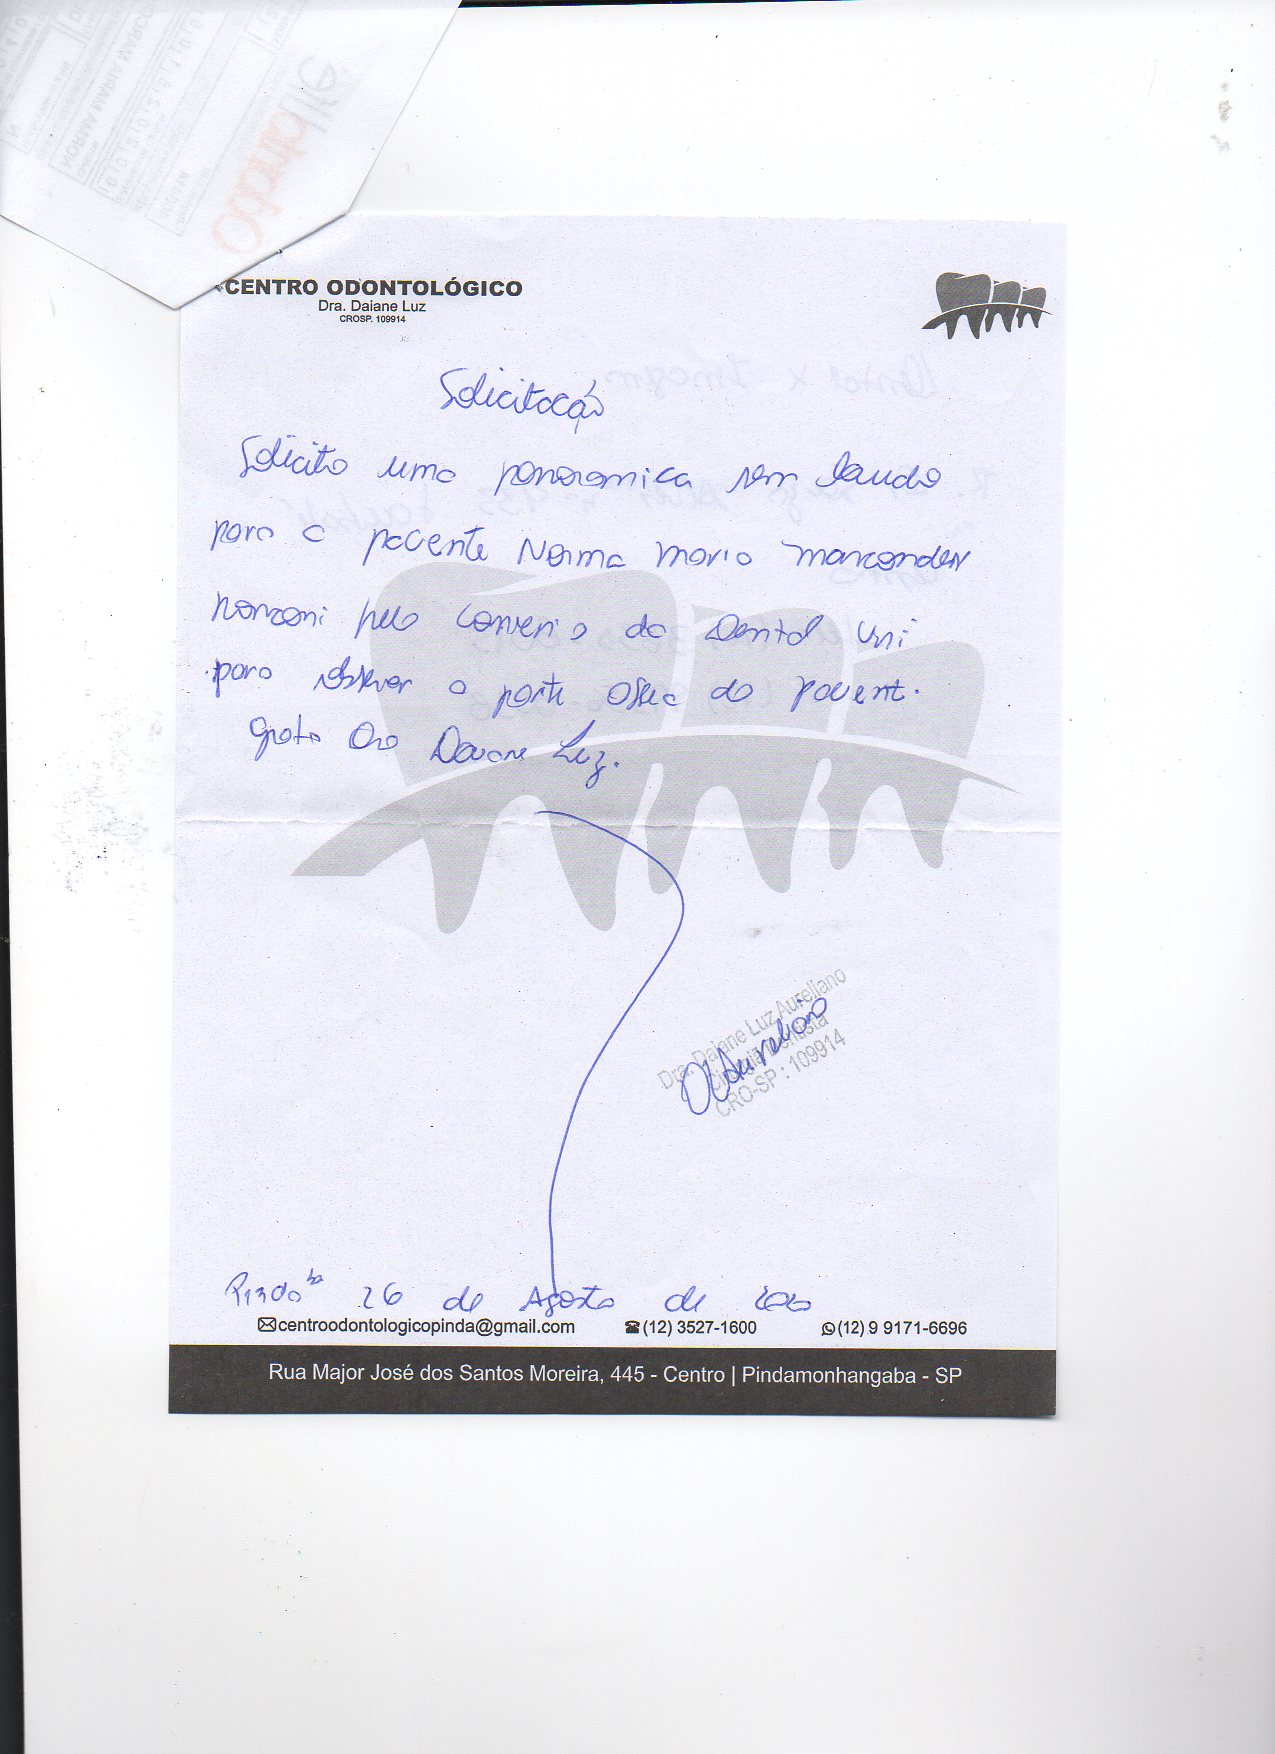 CENTRO ODONTOLÓGICO
Dra. Daiane Luz
CROSP. 109914
Solicitação
Solicito uma panoramica sem laudo
para a paciente Norma Maria Marcondes
pelo convenio da Dental Uni
para observar a parte ossea do pacient.
Grata Dra Daiane Luz.
Dra. Daiane Luz Aureliano
Cirurgiã Dentista
CRO-SP : 109914
DLAureliano
26 de Agosto de
centroodontologicopinda@gmail.com (12) 3527-1600 (12) 9 9171-6696
Rua Major José dos Santos Moreira, 445 - Centro | Pindamonhangaba - SP
odontolife
NORMA MARIA